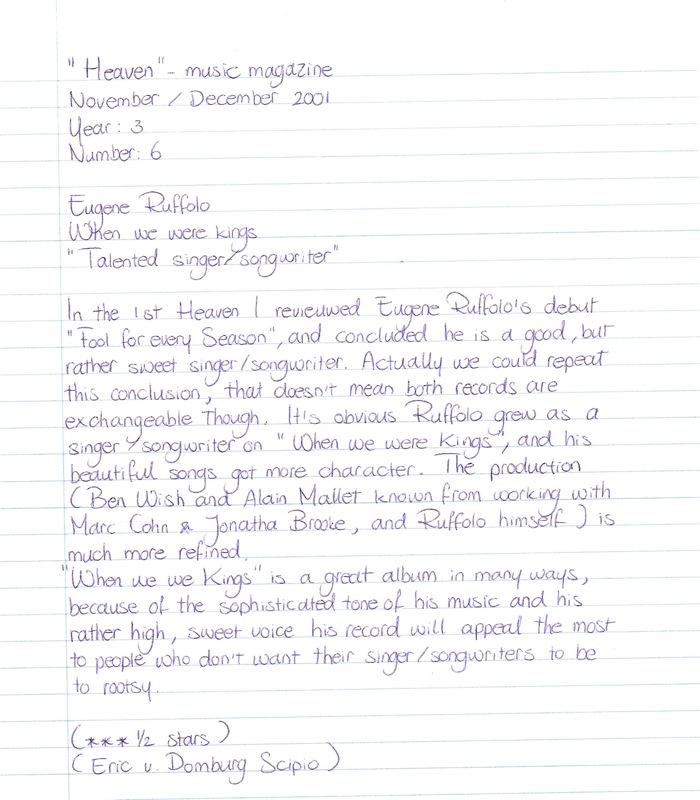 "Heaven" - music magazine
November / December 2001
Year: 3
Number: 6
Eugene Ruffolo
When we were kings
"Talented singer/songwriter"
In the 1st Heaven I revieuwed Eugene Ruffolo's debut
"Fool for every Season", and concluded he is a good, but
rather sweet singer/songwriter. Actually we could repeat
this conclusion, that doesn't mean both records are
exchangeable Though. It's obvious Ruffolo grew as a
singer/songwriter on "When we were Kings", and his
beautiful songs got more character. The production
(Ben Wish and Alain Mallet known from working with
Marc Cohn & Jonatha Brooke, and Ruffolo himself) is
much more refined.
"When we we Kings" is a great album in many ways,
because of the sophisticated tone of his music and his
rather high, sweet voice his record will appeal the most
to people who don't want their singer/songwriters to be
to rootsy.
(*** 1/2 stars)
(Eric v. Domburg Scipio)